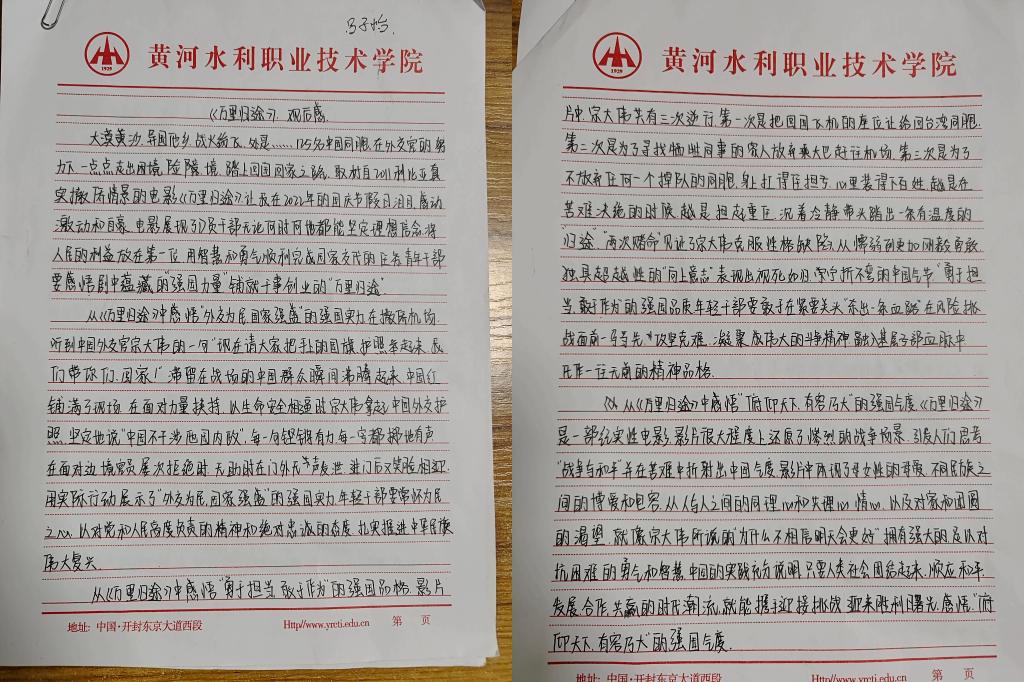 马子怡.
1929
黄河水利职业技术学院
《万里归途》观后感
大漠黄沙,异国他乡,战火纷飞,处是……125名中国同胞,在外交官的努
力下,一点点走出困境,险隘境,踏上回国回家之路,取材自2011利比亚真
实撤侨情景的电影《万里归途》让我在2022年的国庆节假日泪目,感动
激动和自豪,电影展现了D员干部无论何时何地都能坚定理想信念,将
人民的利益放在第一位,用智慧和勇气顺利完成国家交代的任务,青年干部
要感悟剧中蕴藏的"强国力量"铺就干事创业的"万里归途".
从《万里归途》中感悟"外交为民,国家强盛"的强国实力,在撤侨机场,
听到中国外交官宗大伟的一句"现在请大家把手上的国旗,护照举起来,我
们带你们,回家!"滞留在战场的中国群众瞬间沸腾起来,中国红
铺满了现场,在面对力量扶持,以生命安全相逼时,宗大伟拿起中国外交护
照,坚定地说"中国不干涉他国内政",每一句铿锵有力,每一字都掷地有声
在面对边境官员屡次拒绝时,无助时在门外无声发泄,进门后又笑脸相迎,
用实际行动展示了"外交为民,国家强盛"的强国实力,年轻干部要常怀为民
之心,以对党和人民高度负责的精神和绝对忠诚的态度,扎实推进中华民族
伟大复兴.
从《万里归途》中感悟"勇于担当,敢于作为"的强国品格,影片
地址: 中国·开封东京大道西段 Http//www.yrcti.edu.cn 第 页
1929
黄河水利职业技术学院
片中,宗大伟共有三次逆行,第一次是把回国飞机的座位让给回台湾同胞,
第二次是为了寻找牺牲同事的家人放弃乘大巴赶往机场,第三次是为了
不放弃任何一个掉队的同胞,身上扛得住担当,心里装得下百姓,越是在
苦难决绝的时候,越是担起重任,沉着冷静带头踏出一条有温度的
"归途","两次赌命"见证了宗大伟克服性格缺陷,从懦弱到更加刚毅勇敢,
独具超越性的"向上意志",表现出视死如归,宁折不弯的中国气节,"勇于担
当,敢于作为"的强国品质,年轻干部要敢于在紧要关头"杀出一条血路"在风险挑
战面前一马当先,攻坚克难,凝聚成伟大的斗争精神,融入基层干部血脉中
开准一往无前的精神品格.
从《万里归途》中感悟"俯仰天下,有容乃大"的强国气度,《万里归途》
是一部纪实性电影,影片很大程度上还原了惨烈的战争场景,引发人们思考
"战争与和平"并在苦难中折射出中国气度,影片中体现了母女性的母爱,不同民族之
间的博爱和包容,从人与人之间的同理心和共理心情心,以及对家和团圆
的渴望,就像宗大伟所说的"为什么不相信明天会更好"拥有强大的足以对
抗困难的勇气和智慧,中国的实践充分说明,只要人类社会团结起来,顺应和平,
发展,合作,共赢的时代潮流,就能携手迎接挑战,迎来胜利曙光,感悟"俯
仰天下,有容乃大"的强国气度.
地址: 中国·开封东京大道西段 Http//www.yrcti.edu.cn 第 页